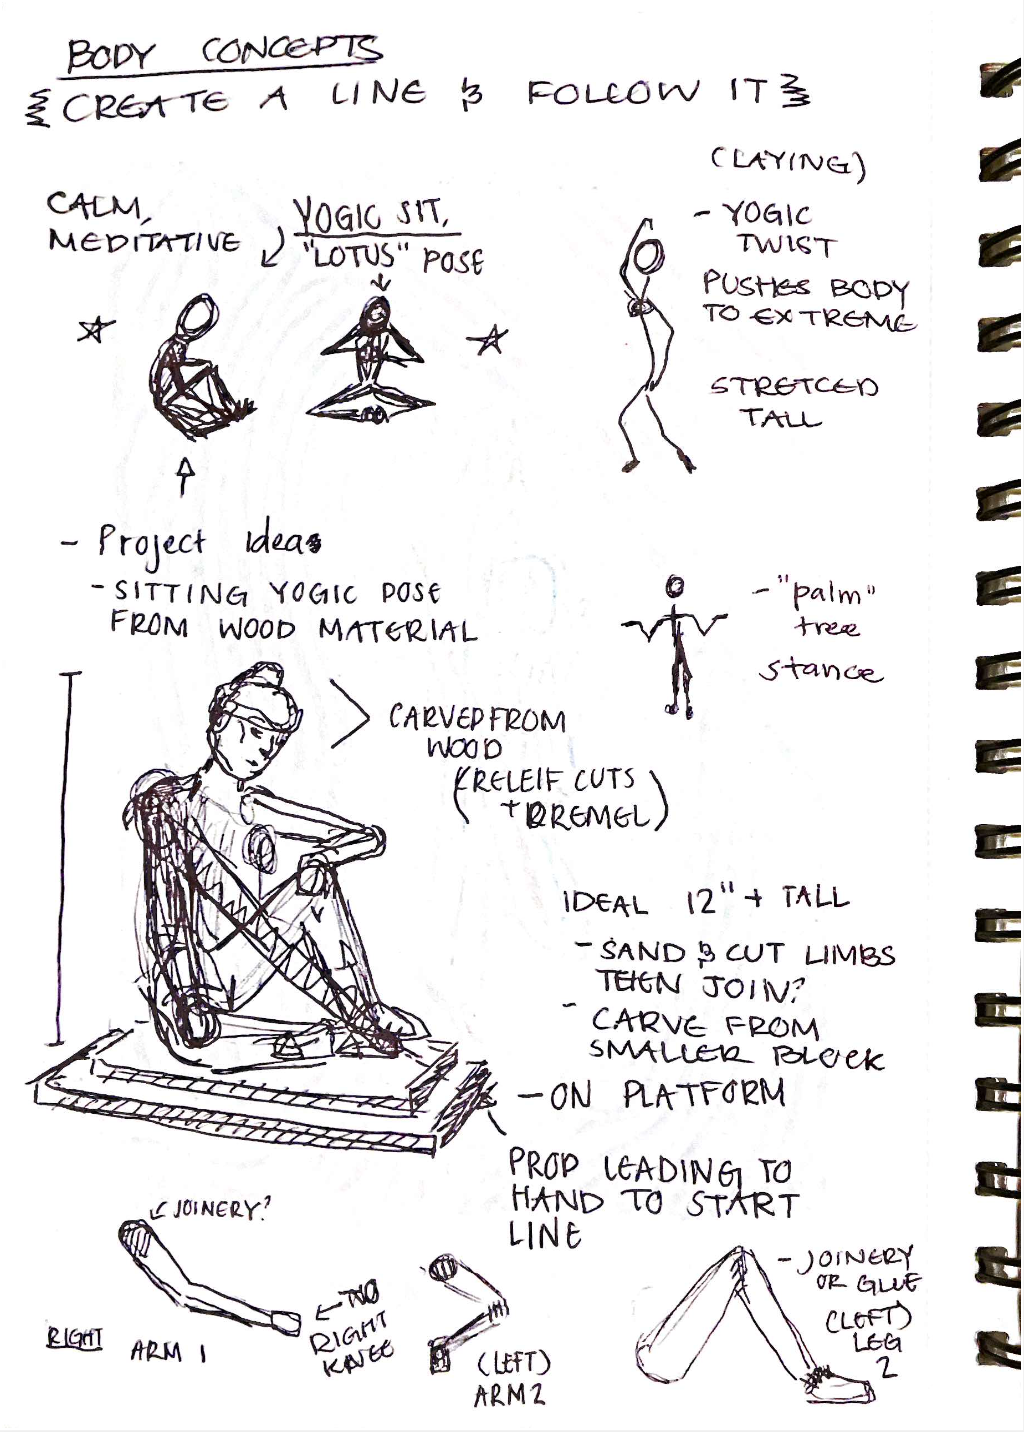 BODY CONCEPTS
CREATE A LINE & FOLLOW IT
CALM,
MEDITATIVE
YOGIC SIT,
"LOTUS" POSE
(LAYING)
- YOGIC
TWIST
PUSHES BODY
TO EXTREME
STRETCED
TALL
- Project Ideas
- SITTING YOGIC POSE
FROM WOOD MATERIAL
- "palm"
tree
stance
CARVED FROM
WOOD
(RELEIF CUTS
+ DREMEL)
IDEAL 12" + TALL
- SAND & CUT LIMBS
THEN JOIN?
- CARVE FROM
SMALLER BLOCK
- ON PLATFORM
PROP LEADING TO
HAND TO START
LINE
JOINERY?
RIGHT ARM 1
TWO
RIGHT
KNEE
(LEFT)
ARM 2
- JOINERY
OR GLUE
(LEFT)
LEG
2